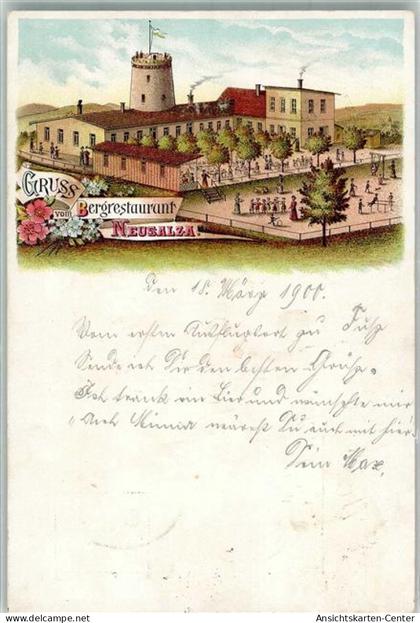 Gruss
vom Bergrestaurant
Neusalza.
Den 15. März 1900.
Vom ersten Ausflugsort zu Fuß
Sende ich Dir den besten Gruß.
Ich trank ein Bier und wünschte mir
"Ach Minna wärest Du auch mit hier!
Dein Max.
Ansichtskarten-Center